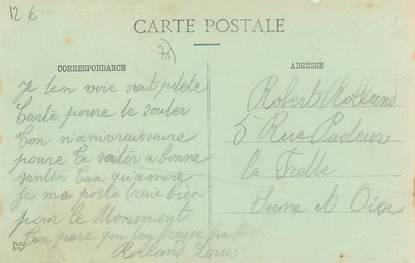 12 €
CARTE POSTALE
78)
CORRESPONDANCE
ADRESSE
Je t'en voie saut petite
Carte poure te souter
Ton n'anivraissaire
poure te soiter a bonne
santer tan qu'amoire
je me porte traie bien
pour le Momment
Ton pere qui tan brasse
Rolland Louis
Robert Rolland
5 Rue Pasteur
la Frette
Seine et Oise